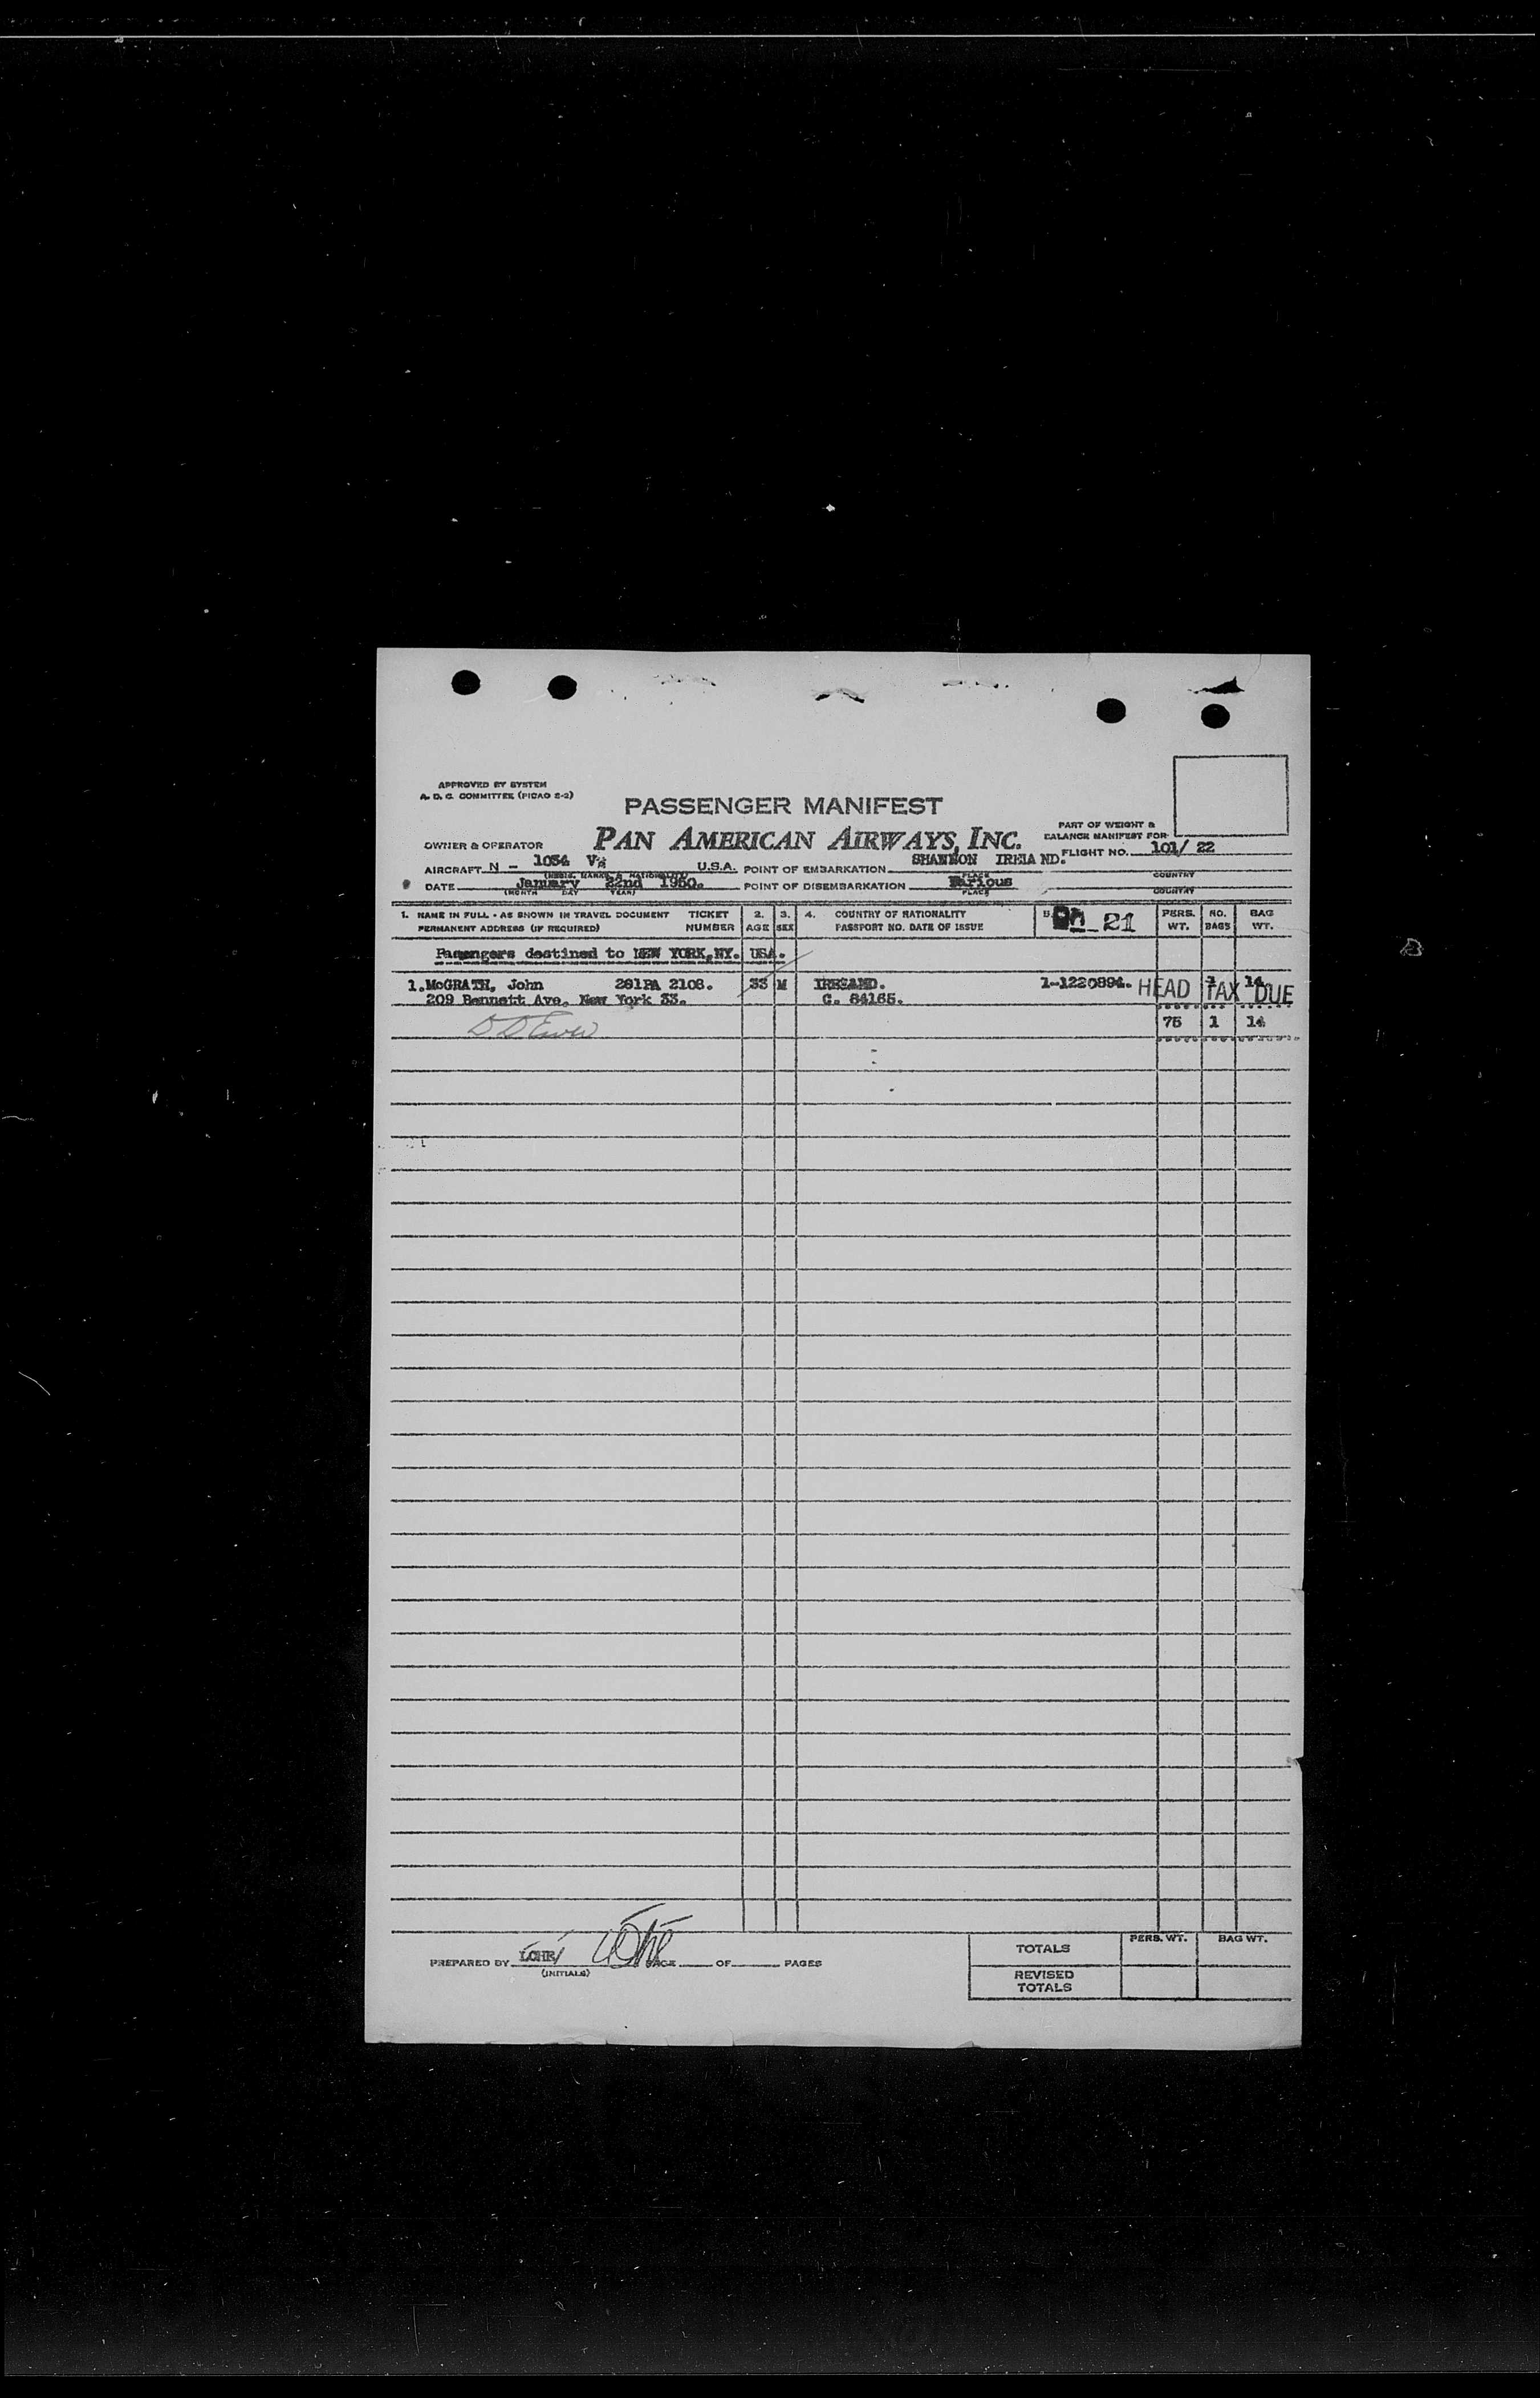 APPROVED BY SYSTEM
A. D. C. COMMITTEE (PICAO 2-2)
PASSENGER MANIFEST
PART OF WEIGHT &
BALANCE MANIFEST FOR
OWNER & OPERATOR PAN AMERICAN AIRWAYS, INC. FLIGHT NO. 101/ 22
AIRCRAFT N - 1034 V U.S.A. POINT OF EMBARKATION SHANNON IRELAND.
(REGIS. MARKS & NATIONALITY) PLACE COUNTRY
DATE January 22nd 1950. POINT OF DISEMBARKATION Various
(MONTH DAY YEAR) PLACE COUNTRY
1. NAME IN FULL - AS SHOWN IN TRAVEL DOCUMENT TICKET 2. 3. 4. COUNTRY OF NATIONALITY 5. 21 PERS. NO. BAG
PERMANENT ADDRESS (IF REQUIRED) NUMBER AGE SEX PASSPORT NO. DATE OF ISSUE WT. BAGS WT.
Passengers destined to NEW YORK,NY. USA.
1. McGRATH, John 281PA 2108. 33 M IRELAND. 1-1220894. HEAD TAX DUE 1 14
209 Bennett Ave. New York 33. C. 84165.
75 1 14
PREPARED BY LOHR/ PAGE OF PAGES
(INITIALS)
PERS. WT. BAG WT.
TOTALS
REVISED
TOTALS